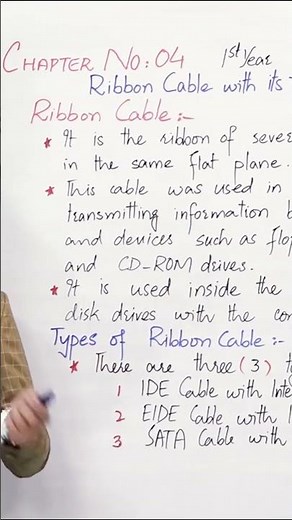 CHAPTER NO:04 1st Year
Ribbon Cable with its
Ribbon Cable:-
* It is the ribbon of sever
in the same flat plane.
* This cable was used in
transmitting information b
and devices such as flop
and CD-ROM drives.
* It is used inside the
disk drives with the con
Types of Ribbon Cable:-
* There are three (3) t
1 IDE Cable with Inte
2 EIDE Cable with I
3 SATA Cable with